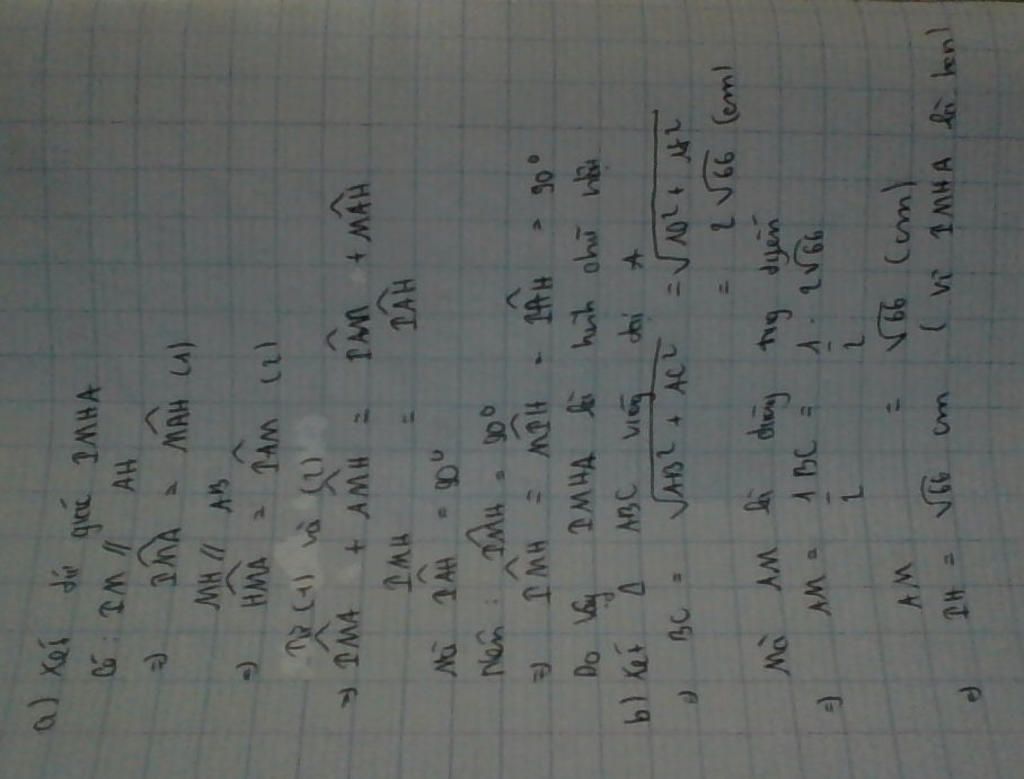 a) Xét tứ giác IMHA
Có : IM // AH
=) IMA = MAH (1)
MH // AB
=) HMA = IAM (2)
Từ (1) và (2)
=) IMA + AMH = IAM + MAH
IMH = IAH
Mà IAH = 90°
Nên : IMH = 90°
=) IMH = MIH = IAH = 90°
Do vậy IMHA là hình chữ nhật
b) Xét Δ ABC vuông tại A
=) BC = √AB² + AC² = √10² + 2
= 2√66 (cm)
Mà AM là đường trung tuyến
=) AM = 1/2 BC = 1/2 . 2√66
AM = √66 (cm)
=) IH = √66 cm (vì IMHA là hcn)